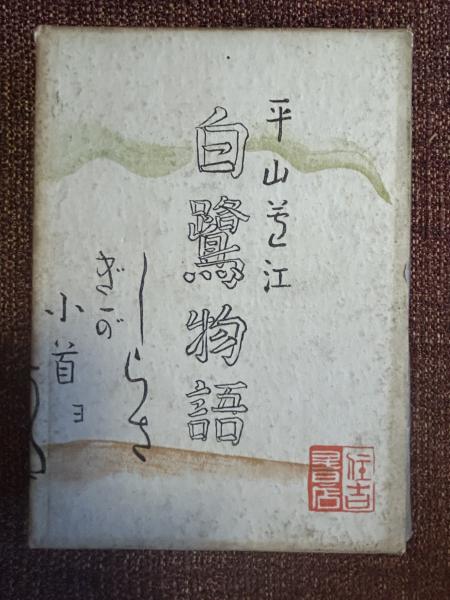 平山芦江
白鷺物語
しらさ
ぎが
小首ヨ
住吉
書店